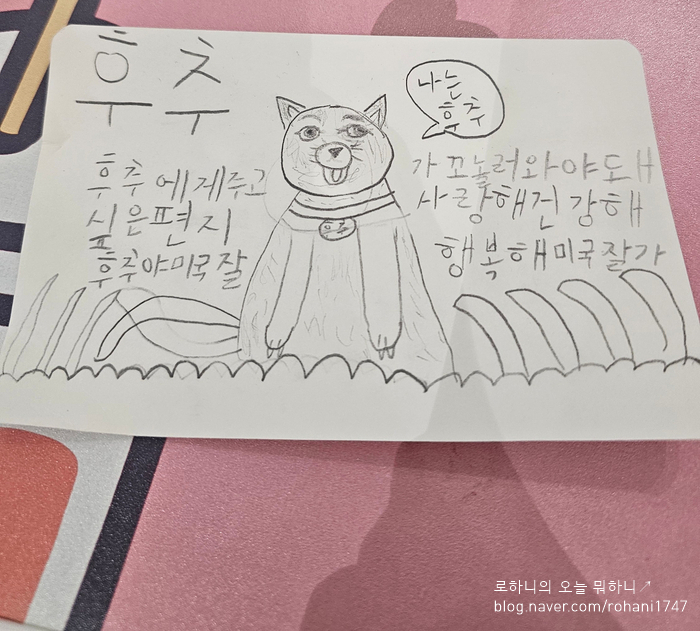 후추
나는
후추
후추에게주고
싶은편지
후추야미국잘
가꼬놀러와야도ㅐ
사랑해건강해
행복해미국잘가
후추
로하니의 오늘 뭐하니↗
blog.naver.com/rohani1747